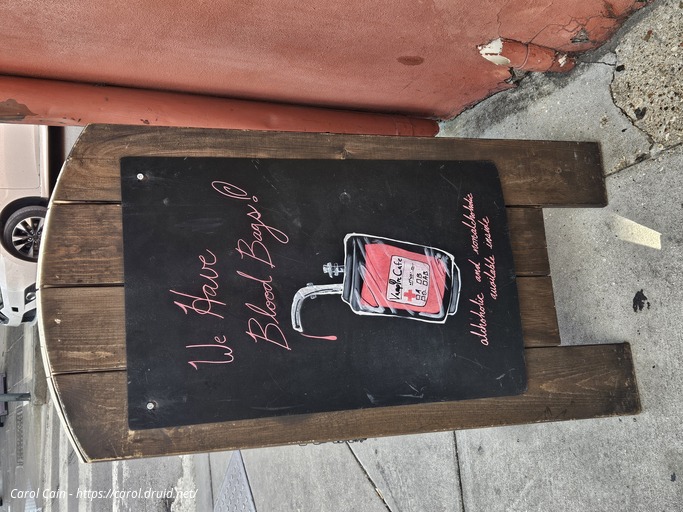 We Have
Blood Bags!
Vampire Cafe
OA OB
OO OAB
alchoholic and nonalchoholic
available inside
Carol Cain - https://carol.druid.net/